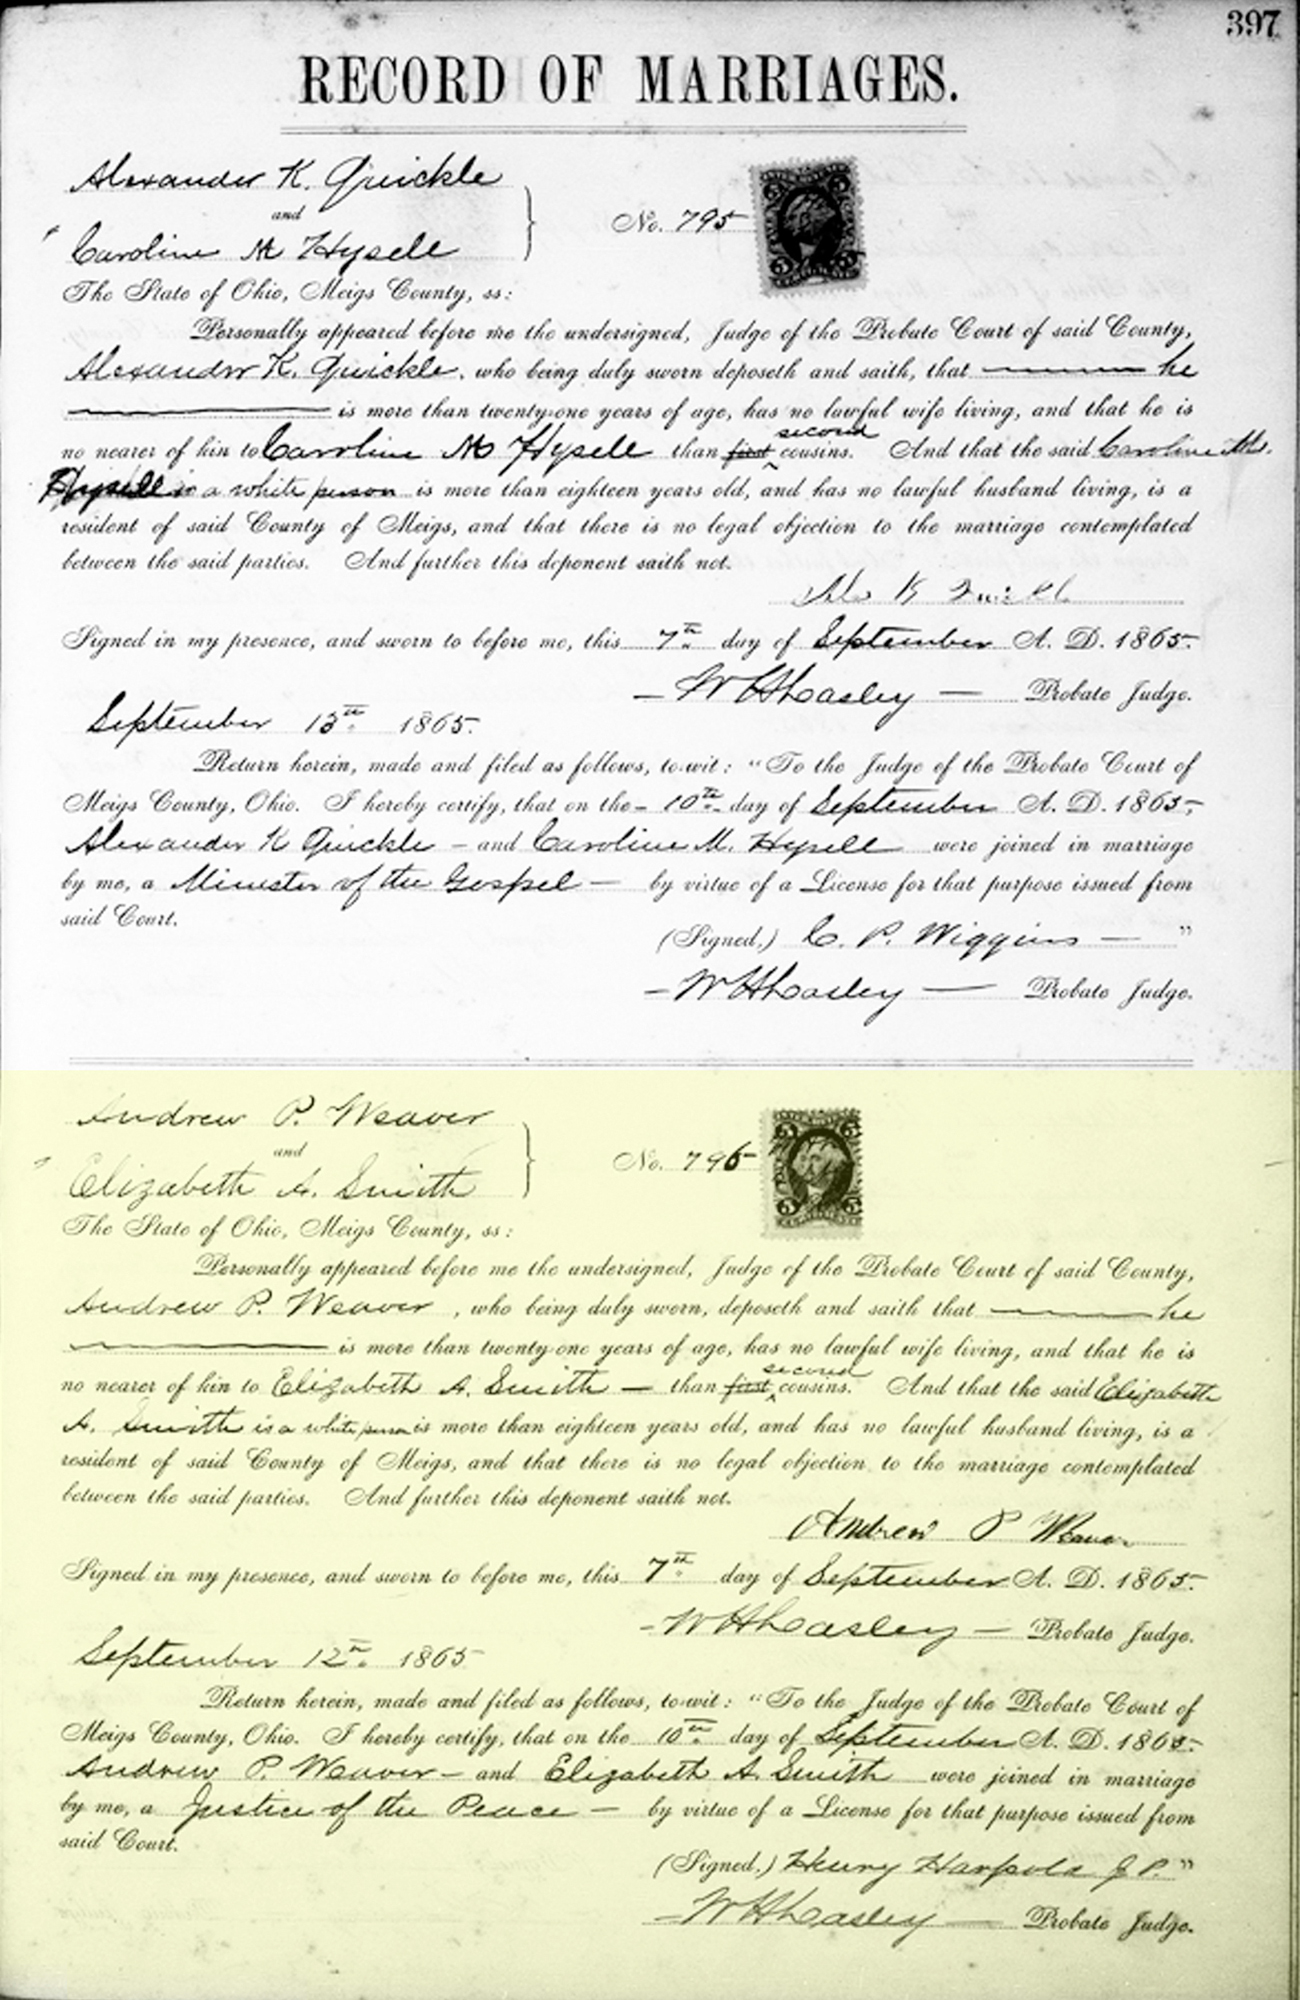 397
RECORD OF MARRIAGES.
Alexander K. Quickle
and
Caroline M Hysell
No. 795
The State of Ohio, Meigs County, ss:
Personally appeared before me the undersigned, Judge of the Probate Court of said County,
Alexander K. Quickle, who being duly sworn deposeth and saith, that he
is more than twenty-one years of age, has no lawful wife living, and that he is
second
no nearer of kin to Caroline M Hysell than first cousins. And that the said Caroline M.
Hysell is a white person is more than eighteen years old, and has no lawful husband living, is a
resident of said County of Meigs, and that there is no legal objection to the marriage contemplated
between the said parties. And further this deponent saith not.
Alex K Quickle
Signed in my presence, and sworn to before me, this 7th day of September A. D. 1865.
W H Lasley Probate Judge.
September 13th 1865.
Return herein, made and filed as follows, to-wit: "To the Judge of the Probate Court of
Meigs County, Ohio. I hereby certify, that on the 10th day of September A. D. 1865,
Alexander K Quickle and Caroline M. Hysell were joined in marriage
by me, a Minister of the Gospel by virtue of a License for that purpose issued from
said Court.
(Signed.) C. P. Wiggins "
W H Lasley Probate Judge.
Andrew P. Weaver
and
Elizabeth A. Smith
No. 796
The State of Ohio, Meigs County, ss:
Personally appeared before me the undersigned, Judge of the Probate Court of said County,
Andrew P. Weaver, who being duly sworn, deposeth and saith that he
is more than twenty-one years of age, has no lawful wife living, and that he is
second
no nearer of kin to Elizabeth A. Smith than first cousins. And that the said Elizabeth
A. Smith is a white person is more than eighteen years old, and has no lawful husband living, is a
resident of said County of Meigs, and that there is no legal objection to the marriage contemplated
between the said parties. And further this deponent saith not.
Andrew P Weaver
Signed in my presence, and sworn to before me, this 7th day of September A. D. 1865.
W H Lasley Probate Judge.
September 12th 1865
Return herein, made and filed as follows, to-wit: "To the Judge of the Probate Court of
Meigs County, Ohio. I hereby certify, that on the 10th day of September A. D. 1865.
Andrew P. Weaver and Elizabeth A. Smith were joined in marriage
by me, a Justice of the Peace by virtue of a License for that purpose issued from
said Court.
(Signed.) Henry Harpold J. P. "
W H Lasley Probate Judge.